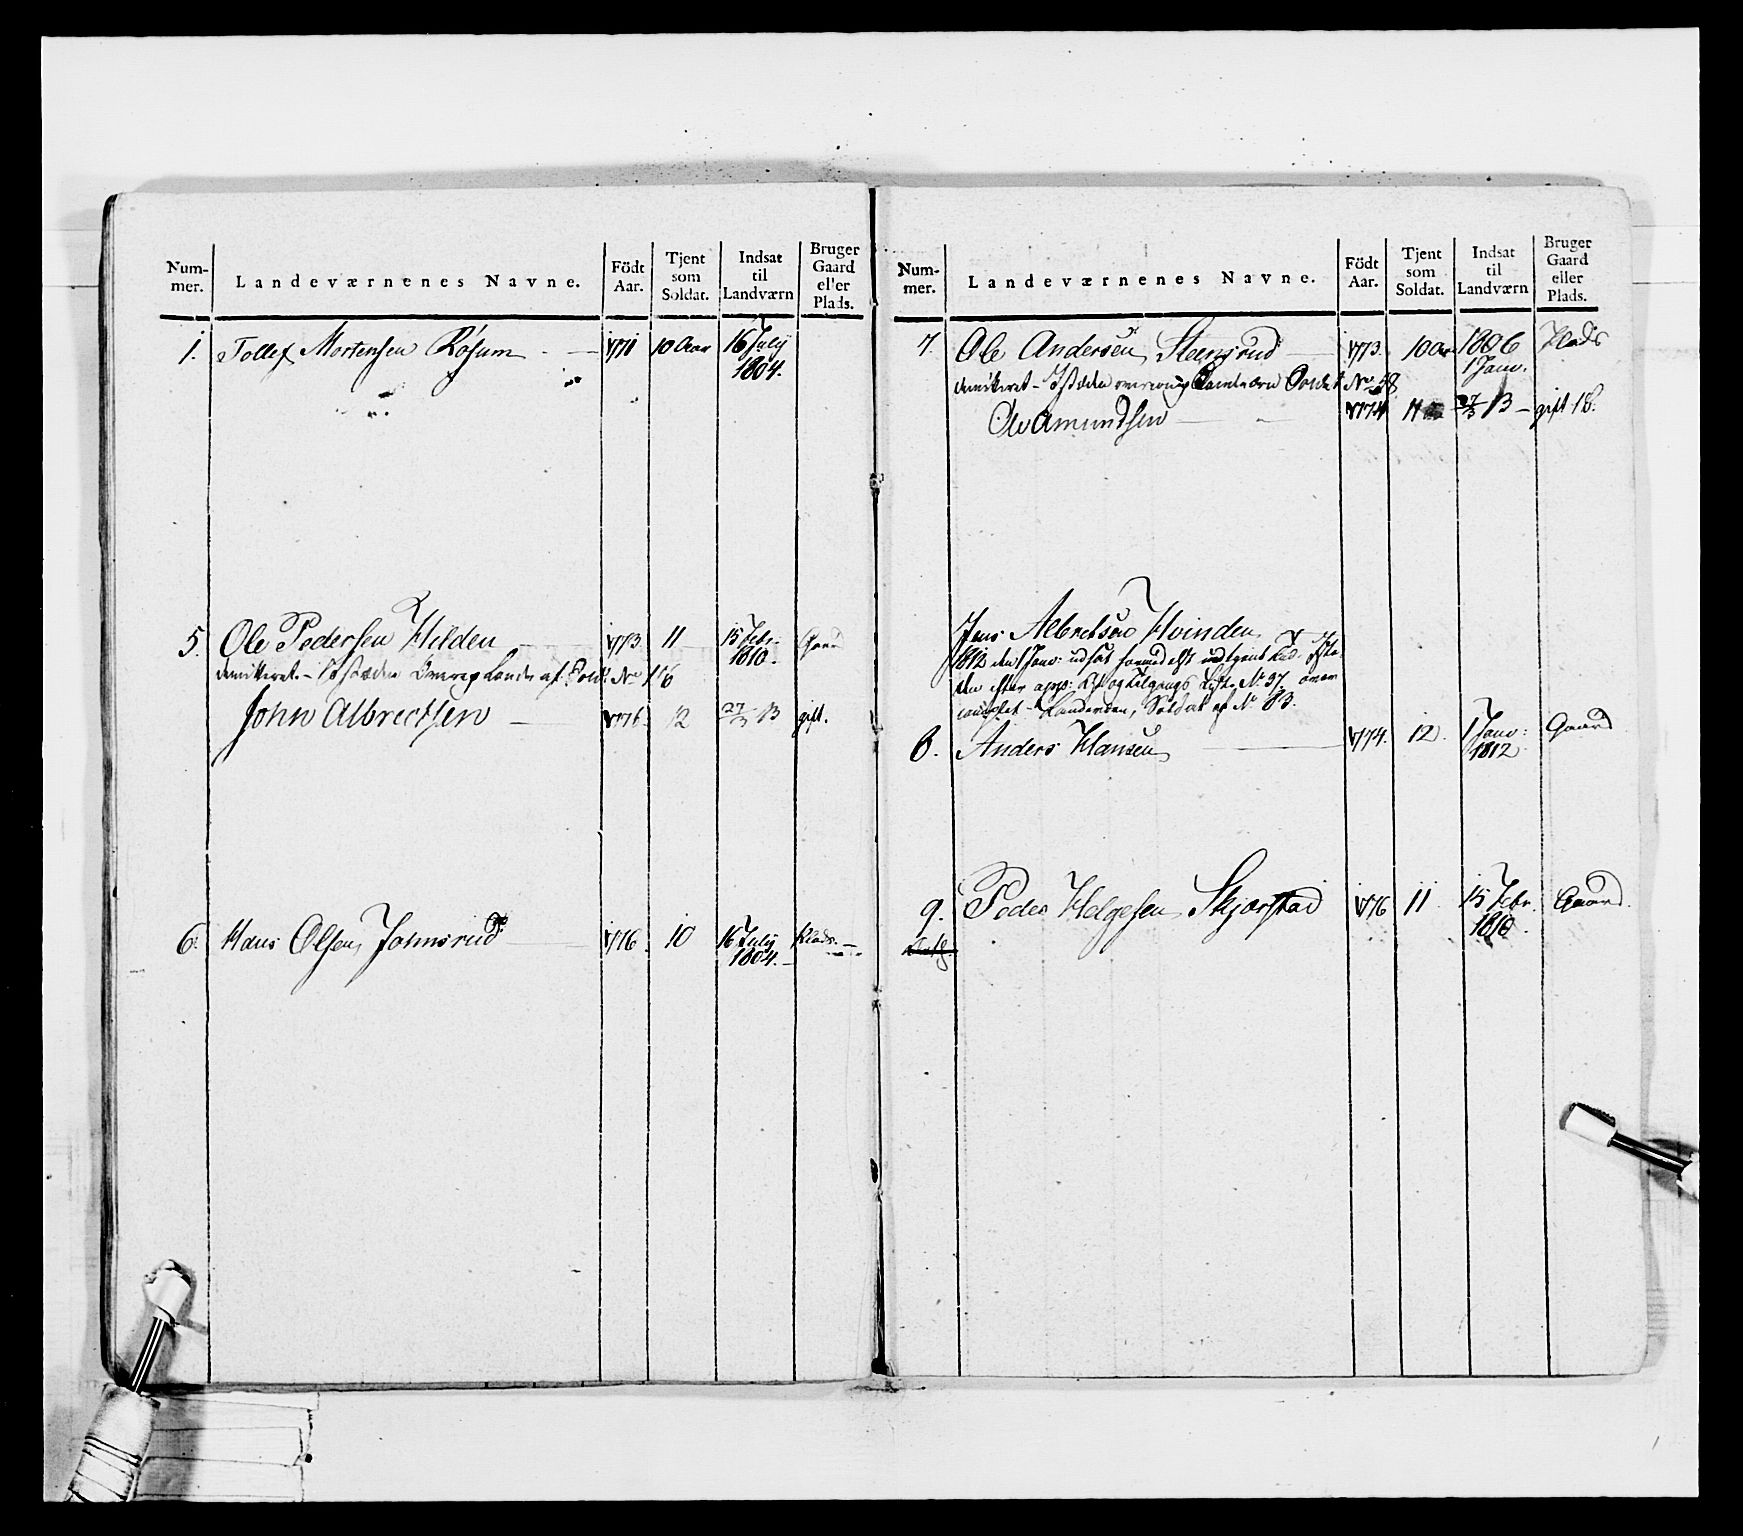 Num-
mer.
Landeværnenes Navne.
Födt
Aar.
Tjent
som
Soldat.
Indsat
til
Landværn
Bruger
Gaard
el'er
Plads.
1. Tollef Mortensen Røsum 1771 10 Aar 16 July
1804.
5. Ole Pedersen Hilden 1773. 11 15 Febr.
1810. Gaard
John Albrechtsen 1776. 12 27/3 13 gift.
6. Hans Olsen Johnsrud 1776. 10 16 July
1804. Plads.
Num-
mer.
Landeværnenes Navne.
Födt
Aar.
Tjent
som
Soldat.
Indsat
til
Landværn
Bruger
Gaard
eller
Plads.
7. Ole Andersen Steensrud 1773. 10 Aar 1806 Plads
1 Janv.
No 58
Ole Amundsen 1774 11 27/3 13 gift 1 B.
Jens Albretsen Hvinden
1812 den 1 Janv: udsat formedelst udtjent Tid.
den efter app: Af og Tilgangs Liste No 37.
Landeværn, Soldat af No 83.
8. Anders Hansen 1774. 12. 1 Janv:
1812. Gaard
9. Peder Helgesen Skjærstad 1776 11 15 Febr.
1810. Gaard.